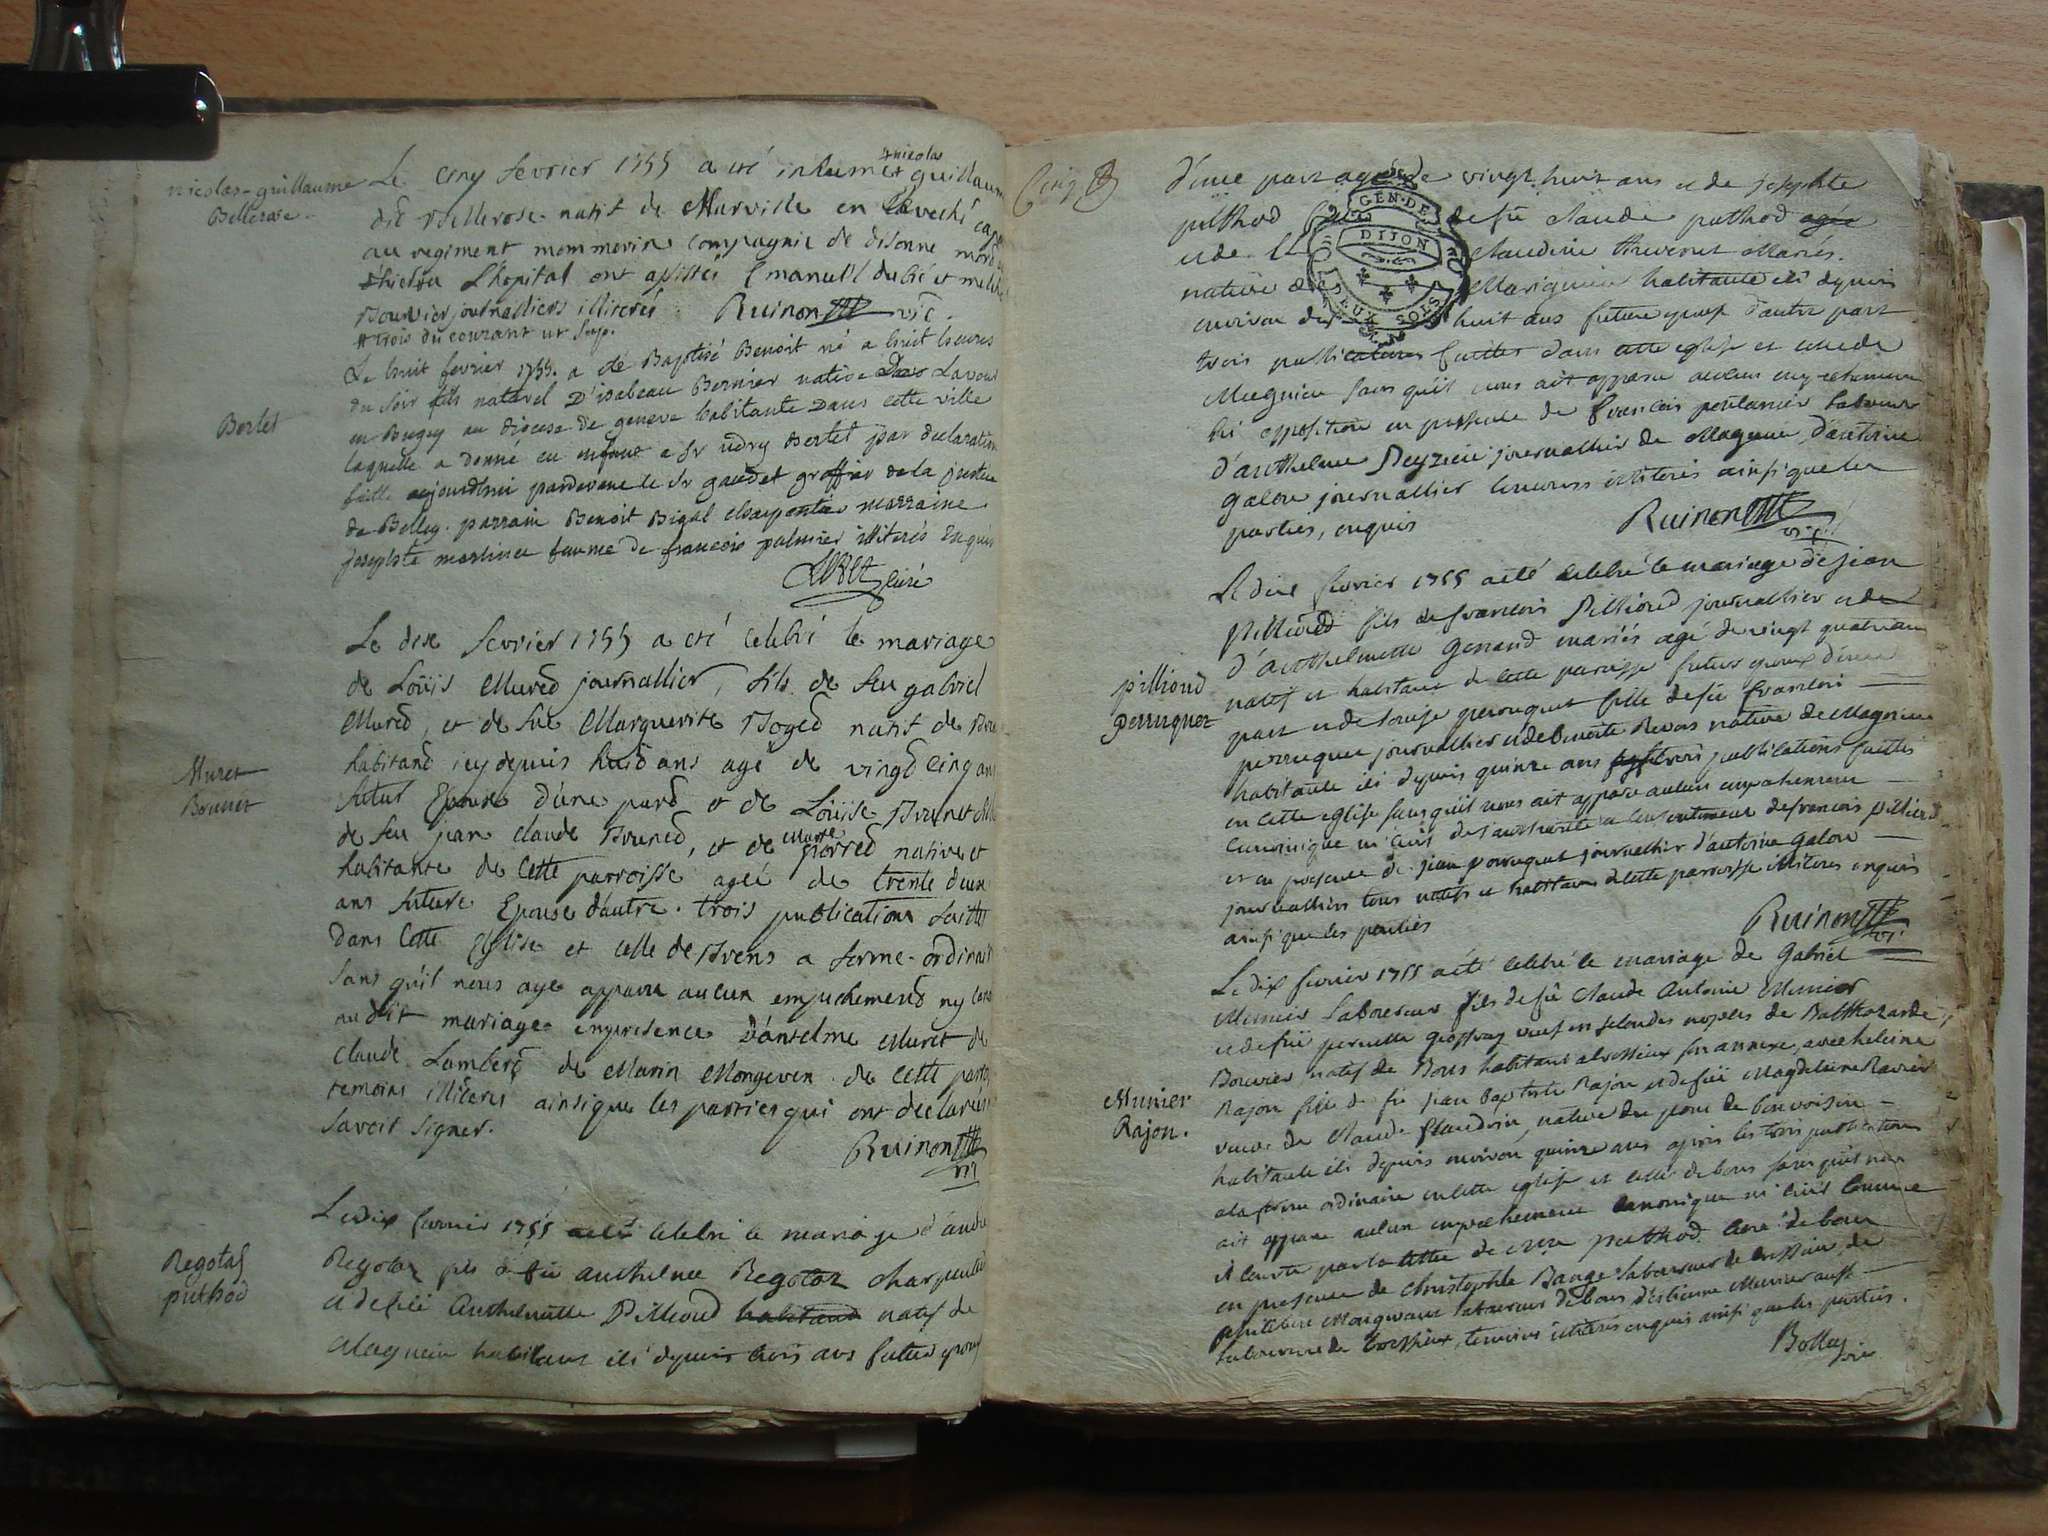 nicolas-guillaume
Bellerose
Le cinq fevrier 1755 a eté inhumé guillaume
nicolas
dit Bellerose natif de Marville en
au regiment mommorin compagnie de disonne mort
L'hôpital ont assisté Emanuel dubié et
Bouvier journalliers illiterés Ruinon vic.
trois du courant ut sup.
Bertet
Le huit fevrier 1755 a été Baptisé Benoit né a huit heures
du soir fils naturel D'isabeau Bernier native de Lavour
en Bugey au diocese de geneve habitante Dans cette ville
laquelle a donné cu enfant a Sr Bertet par declaration
faitte aujourdhui pardevant le Sr gaudet greffier de la justice
de Belley. parrain Benoit Bigal charpentier marraine
josephte martinet femme de francois palmier illiterés Enquis
curé
Muret
Brunet
Le dix fevrier 1755 a eté celebré le mariage
de Loüis Mured journallier, fils de feu gabriel
Mured, et de feue Marguerite Boged natif de
habitand icy depuis huid ans agé de vingd cinq ans
futur Epoux d'une pard et de Loüise Brunet fille
de feu jean claude Bruned, et de pierred native et
habitante de cette parroisse ageé de trente deux
ans future Epouse d'autre. trois publications faittes
dans cette Eglise et celle de Brens a forme ordinaire
sans qu'il nous aye apparu aucun empechemend ny
audit mariage en presence D'anselme Muret de
claude Lamberd de Marin Mongeven de cette
temoins illiterés ainsi que les parties qui ont declarés
savoir signer.
Ruinon
vic
Regotaz
puthod
Le dix fevrier 1755 a eté celebré le mariage d'andré
Regotaz fils de fû anthelme Regotaz charpentier
et de feüe Anthelmette Pillioud habitand natif de
Magnieu habitant ici depuis trois ans futur epoux
Cinq
d'une part agé de vingt huit ans et de josephte
puthod fille de fû claude puthod agée
et de claudine thevenet Mariés.
native de Marignieu habitante ici depuis
environ dix huit ans future epouse d'autre part
GEN. DE
DIJON
DEUX SOLS
trois publications faittes dans cette eglise et celle de
Magnieu sans qu'il nous ait apparu aucun empechement
ni opposition en presence de francois laboureur
d'anthelme Peyzieu journallier de Magnieu, d'antoine
Galon journallier temoins illiterés ainsi que les
parties, enquis
Ruinon
vic.
pillioud
Perruquet
Le dix fevrier 1755 a eté celebré le mariage de jean
pillioud fils de francois Pillioud journallier et de
d'anthelmette Genand mariés agé de vingt quatre ans
natif et habitant de cette paroisse futur epoux d'une
part et de Louise perruquet fille de fû francois
perruquet journallier et de benoite Revon native de Magnieu
habitante ici depuis quinze ans trois publications faittes
en cette eglise sans qu'il nous ait apparu aucun empechement
canonique ni civil de l'authorité et consentement de francois pillioud
et en presence de jean perruquet journallier d'antoine Galon
journalliers tous natifs et habitans de cette parroisse illiteres enquis
ainsi que les parties
Ruinon
vic.
Munier
Rajon.
Le dix fevrier 1755 a eté celebré le mariage de Gabriel
Munier Laboureur fils de fû claude Antoine Munier
et de feüe pernette Geoffray veuf en secondes noples de Balthazarde
Bouvier natif de Bons habitant a son annexe, avec heleine
Rajon fille de fû jean Baptiste Rajon et de feüe Magdeleine Ravier
veuve de Claude Claudrin, native du pont de bonvoisin
habitante ici depuis environ quinze ans apres les trois publications
a la forme ordinaire en cette eglise et celle de bons sans qu'il nous
ait apparu aucun empechement canonique ni civil comme
il conste par la lettre de mre puthod curé de bons
en presence de Christophle Bauge laboureur de de
philibert Mongevant laboureur de bons, d'estienne Munier aussi
laboureur de temoins illiterés enquis ainsi que les parties.
Bolley
vic